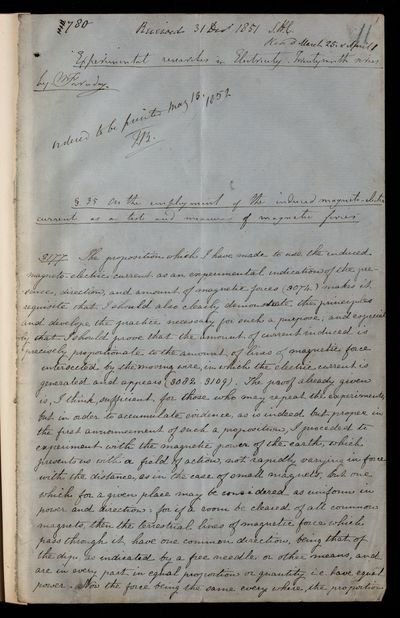 780
Received 31 Dec 1851 S.H.C.
Read March 25. & April 1
11
"Experimental researches in Electricity. Twentyninth series
by M Faraday.
ordered to be printed May 13. 1852
§ 35 On the employment of the induced magneto-electric
current as a test and measure of magnetic forces
3177. The proposition which I have made to use the induced
magneto-electric current as an experimental indication of the pre-
sence, direction, and amount of magnetic forces (3074) makes it
requisite that I should also clearly demonstrate the principles
and develope the practice necessary for such a purpose; and especial
ly that I should prove that the amount of current induced is
precisely proportionate to the amount of lines of magnetic force
intersected by the moving wire, in which the electric current is
generated and appears (3082. 3109). The proof already given
is, I think, sufficient for those who may repeat the experiments,
but in order to accumulate evidence, as is indeed but proper in
the first announcement of such a proposition, I proceeded to
experiment with the magnetic power of the earth, which
presents us with a field of action, not rapidly varying in force
with the distance, as in the case of small magnets, but one
which for a given place may be considered as uniform in
power and direction: for if a room be cleared of all common
magnets, then the terrestrial lines of magnetic force which
pass through it, have one common direction, being that of
the dip, as indicated by a free needle or other means, and
are in every part in equal proportion or quantity i.e. have equal
power. Now the force being the same every where, the proportion